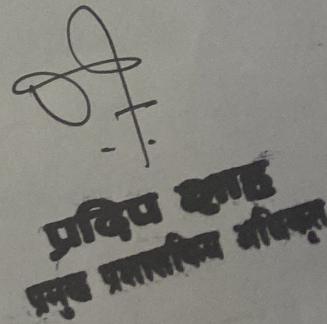 प्रदिप शाह
प्रमुख प्रशासकिय अधिकृत